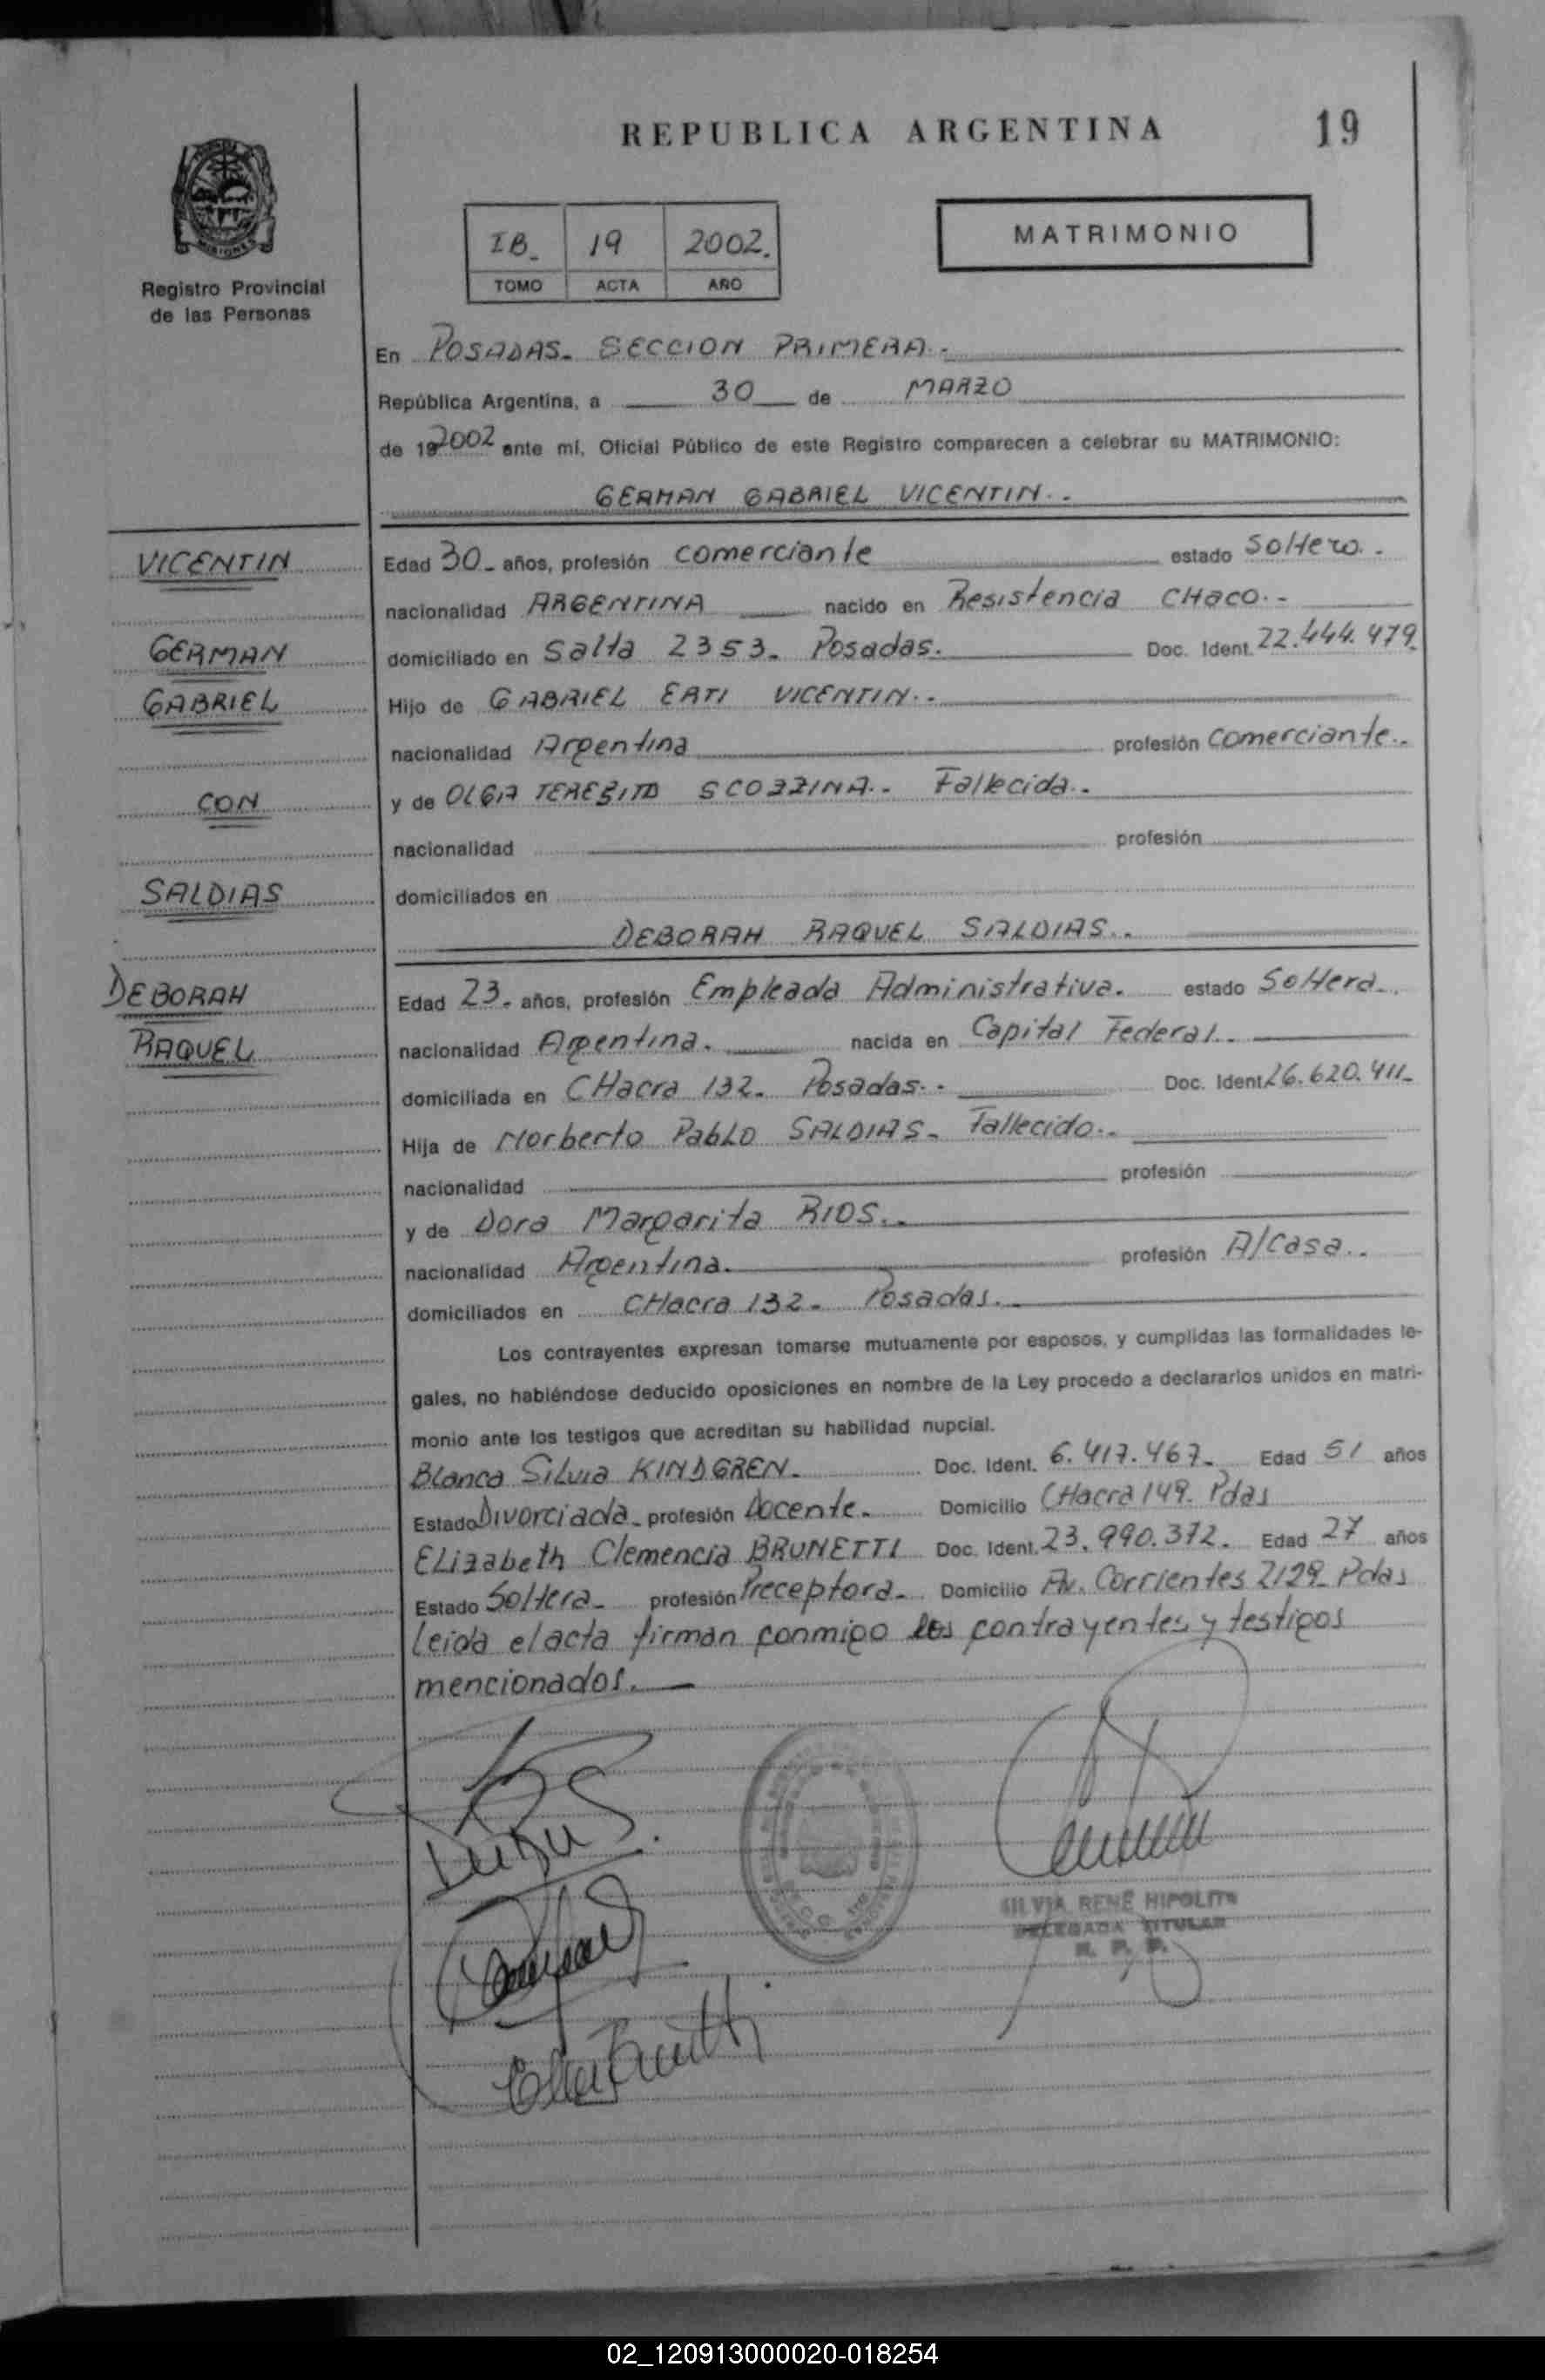 REPUBLICA ARGENTINA
19
MISIONES
Registro Provincial
de las Personas
IB_ 19 2002.
TOMO ACTA AÑO
MATRIMONIO
En POSADAS_ SECCION PRIMERA.-
República Argentina, a 30 de MARZO
de 19 2002 ante mí, Oficial Público de este Registro comparecen a celebrar su MATRIMONIO:
GERMAN GABRIEL VICENTIN.-
VICENTIN
GERMAN
GABRIEL
CON
SALDIAS
DEBORAH
RAQUEL
Edad 30_ años, profesión comerciante estado Soltero.-
nacionalidad ARGENTINA nacido en Resistencia CHaco.-
domiciliado en Salta 2353_ Posadas. Doc. Ident. 22.444.479_
Hijo de GABRIEL ERTI VICENTIN.-
nacionalidad Argentina profesión Comerciante.-
y de OLGA TERESITA SCOZZINA.- Fallecida.-
nacionalidad profesión
domiciliados en
DEBORAH RAQUEL SALDIAS.-
Edad 23_ años, profesión Empleada Administrativa. estado Soltera_.
nacionalidad Argentina. nacida en Capital Federal.-
domiciliada en CHacra 132_ Posadas.- Doc. Ident. 26.620.411_
Hija de Norberto PabLo SALDIAS_ Fallecido.-
nacionalidad profesión
y de Dora Margarita RIOS.-
nacionalidad Argentina. profesión A/Casa.-
domiciliados en CHacra 132_ Posadas.-
Los contrayentes expresan tomarse mutuamente por esposos, y cumplidas las formalidades le-
gales, no habiéndose deducido oposiciones en nombre de la Ley procedo a declararlos unidos en matri-
monio ante los testigos que acreditan su habilidad nupcial.
BLanca SiLvia KINDGREN_ Doc. Ident. 6.417.467_ Edad 51 años
Estado Divorciada_ profesión Docente_ Domicilio CHacra 149_ Pdas
ELizabeth Clemencia BRUNETTI Doc. Ident. 23.990.372_ Edad 27 años
Estado Soltera_ profesión Preceptora_ Domicilio Av. Corrientes 2129_ Pdas
Leida el acta firman conmigo los contrayentes y testigos
mencionados._
SILVIA RENÉ HIPOLITO
DELEGADA TITULAR
R. P. P.
02_120913000020-018254